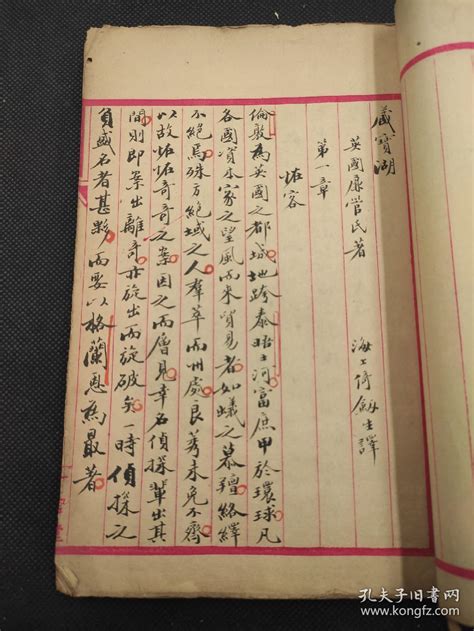 藏寶湖
英國康営氏著
海上倚劍生譯
第一章
怪客
倫敦為英國之都城地跨泰晤士河富庶甲於環球凡
各國資本家之望風而来貿易者如蟻之慕羶絡繹
不絕焉殊方絕域之人羣萃而州處良莠未免不齊
以故怪怪奇奇之案因之而層見幸名偵探輩出其
間則即案出離奇亦旋出而旋破矣一時偵探之
負盛名者甚夥而要以格蘭恩為最著
孔夫子旧书网
www.kongfz.com